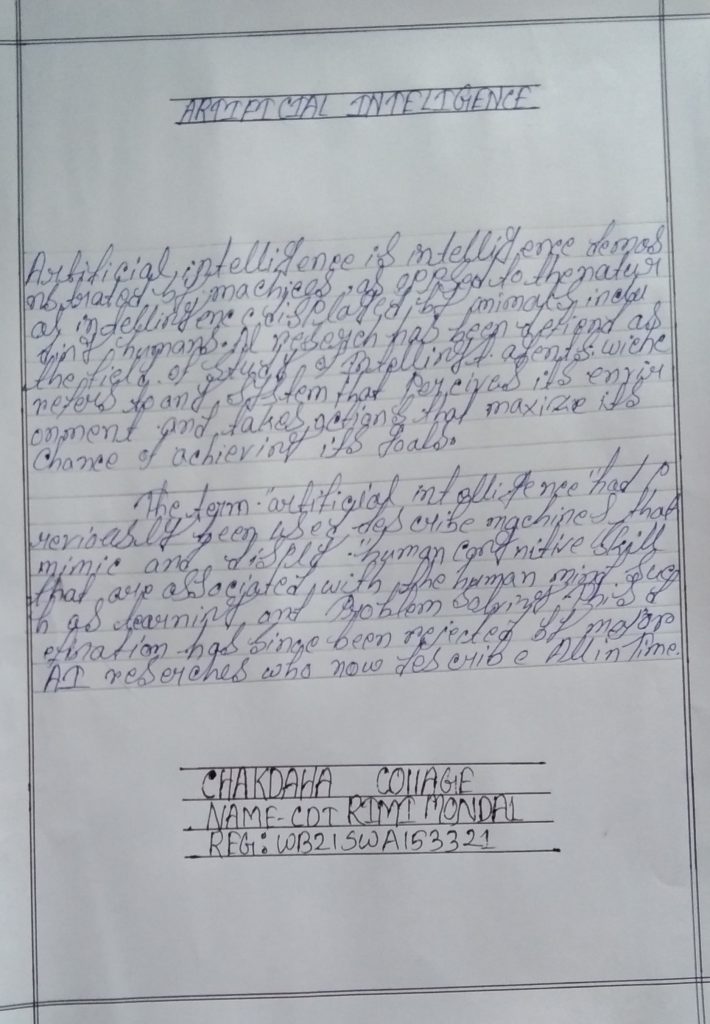 ARTIFICIAL INTELIGENCE
Artificial intelligence is intelligence demos
nstrated by machices, as opposed to the natur
as intelligence displayed by animals inclu
ding humans. AI reserch has been defiend as
the field of study of intelligent agents. wiche
refers to any system that percives its envir
onment and takes actions that maxize its
Chance of achieving its goals.
The term "artificial intelligence" had p
reviously been used describe machines that
mimic and disply "human cognitive skill
that are associated with the human mind. Suc
h as learning and Problem solving. This d
efination has since been rejected by major
AI reserches who now describe AI in time.
CHAKDAHA COllAGE
NAME- CDT RIMI MONDAL
REG: WB21SWA153321